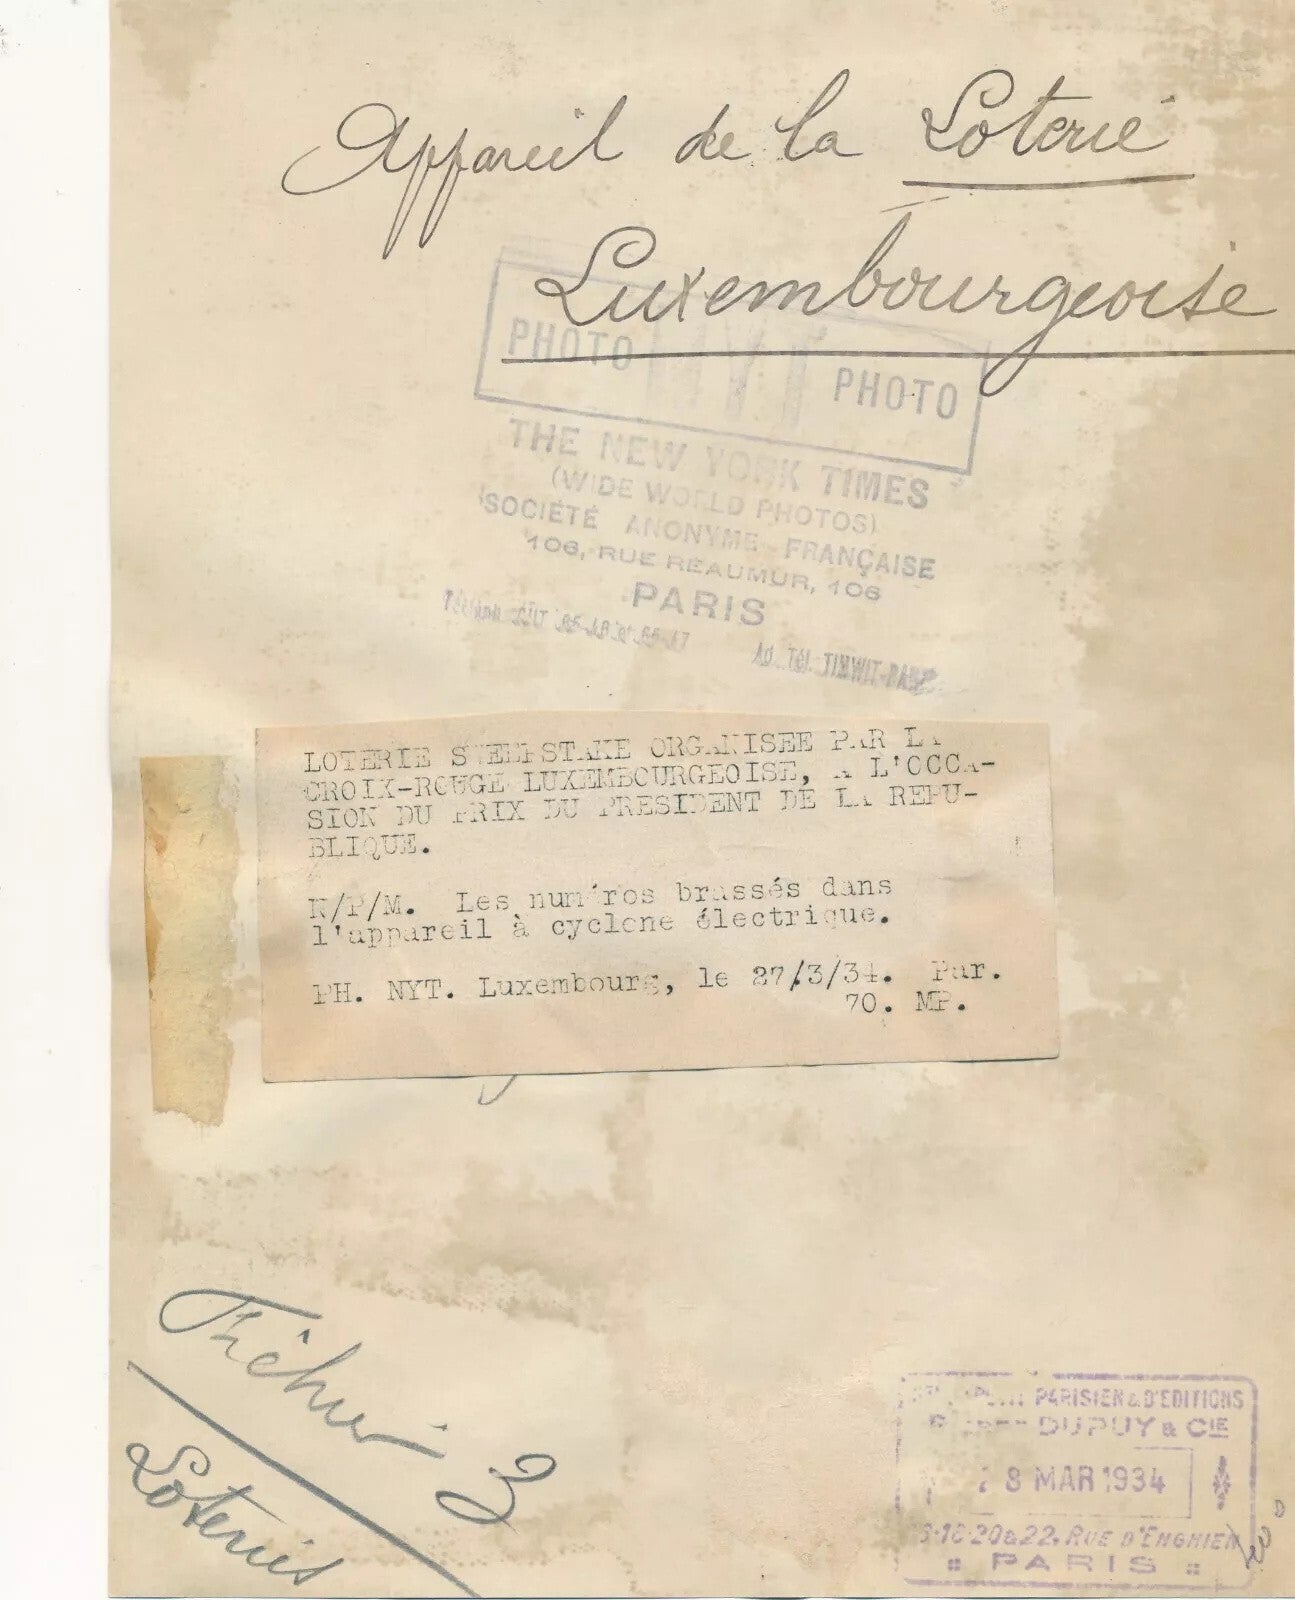 Appareil de la Loterie
Luxembourgeoise
PHOTO NYT PHOTO
THE NEW YORK TIMES
(WIDE WORLD PHOTOS)
SOCIÉTÉ ANONYME FRANÇAISE
106, RUE RÉAUMUR, 106
PARIS
Ad. Tél. TIMWIT-PARIS
LOTERIE SWEEPSTAKE ORGANISEE PAR LA
CROIX-ROUGE LUXEMBOURGEOISE, A L'OCCA-
SION DU PRIX DU PRESIDENT DE LA REPU-
BLIQUE.
N/P/M. Les numéros brassés dans
l'appareil à cyclone électrique.
PH. NYT. Luxembourg, le 27/3/34. Par.
70. MP.
Fichier 3
Loteries
PARISIEN & D'EDITIONS
DUPUY & CIE
8 MAR 1934
18·20&22, RUE D'ENGHIEN
PARIS